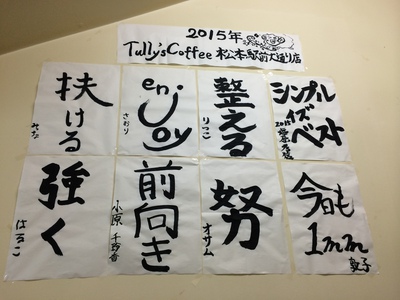 2015年
Tully'sCoffee 松本駅前大通り店
扶ける
enjoy
さおり
整える
りつこ
シンプル
イズ
ベスト
強く
前向き
小原 千紗香
努
オサム
今日も
1mm
敦子